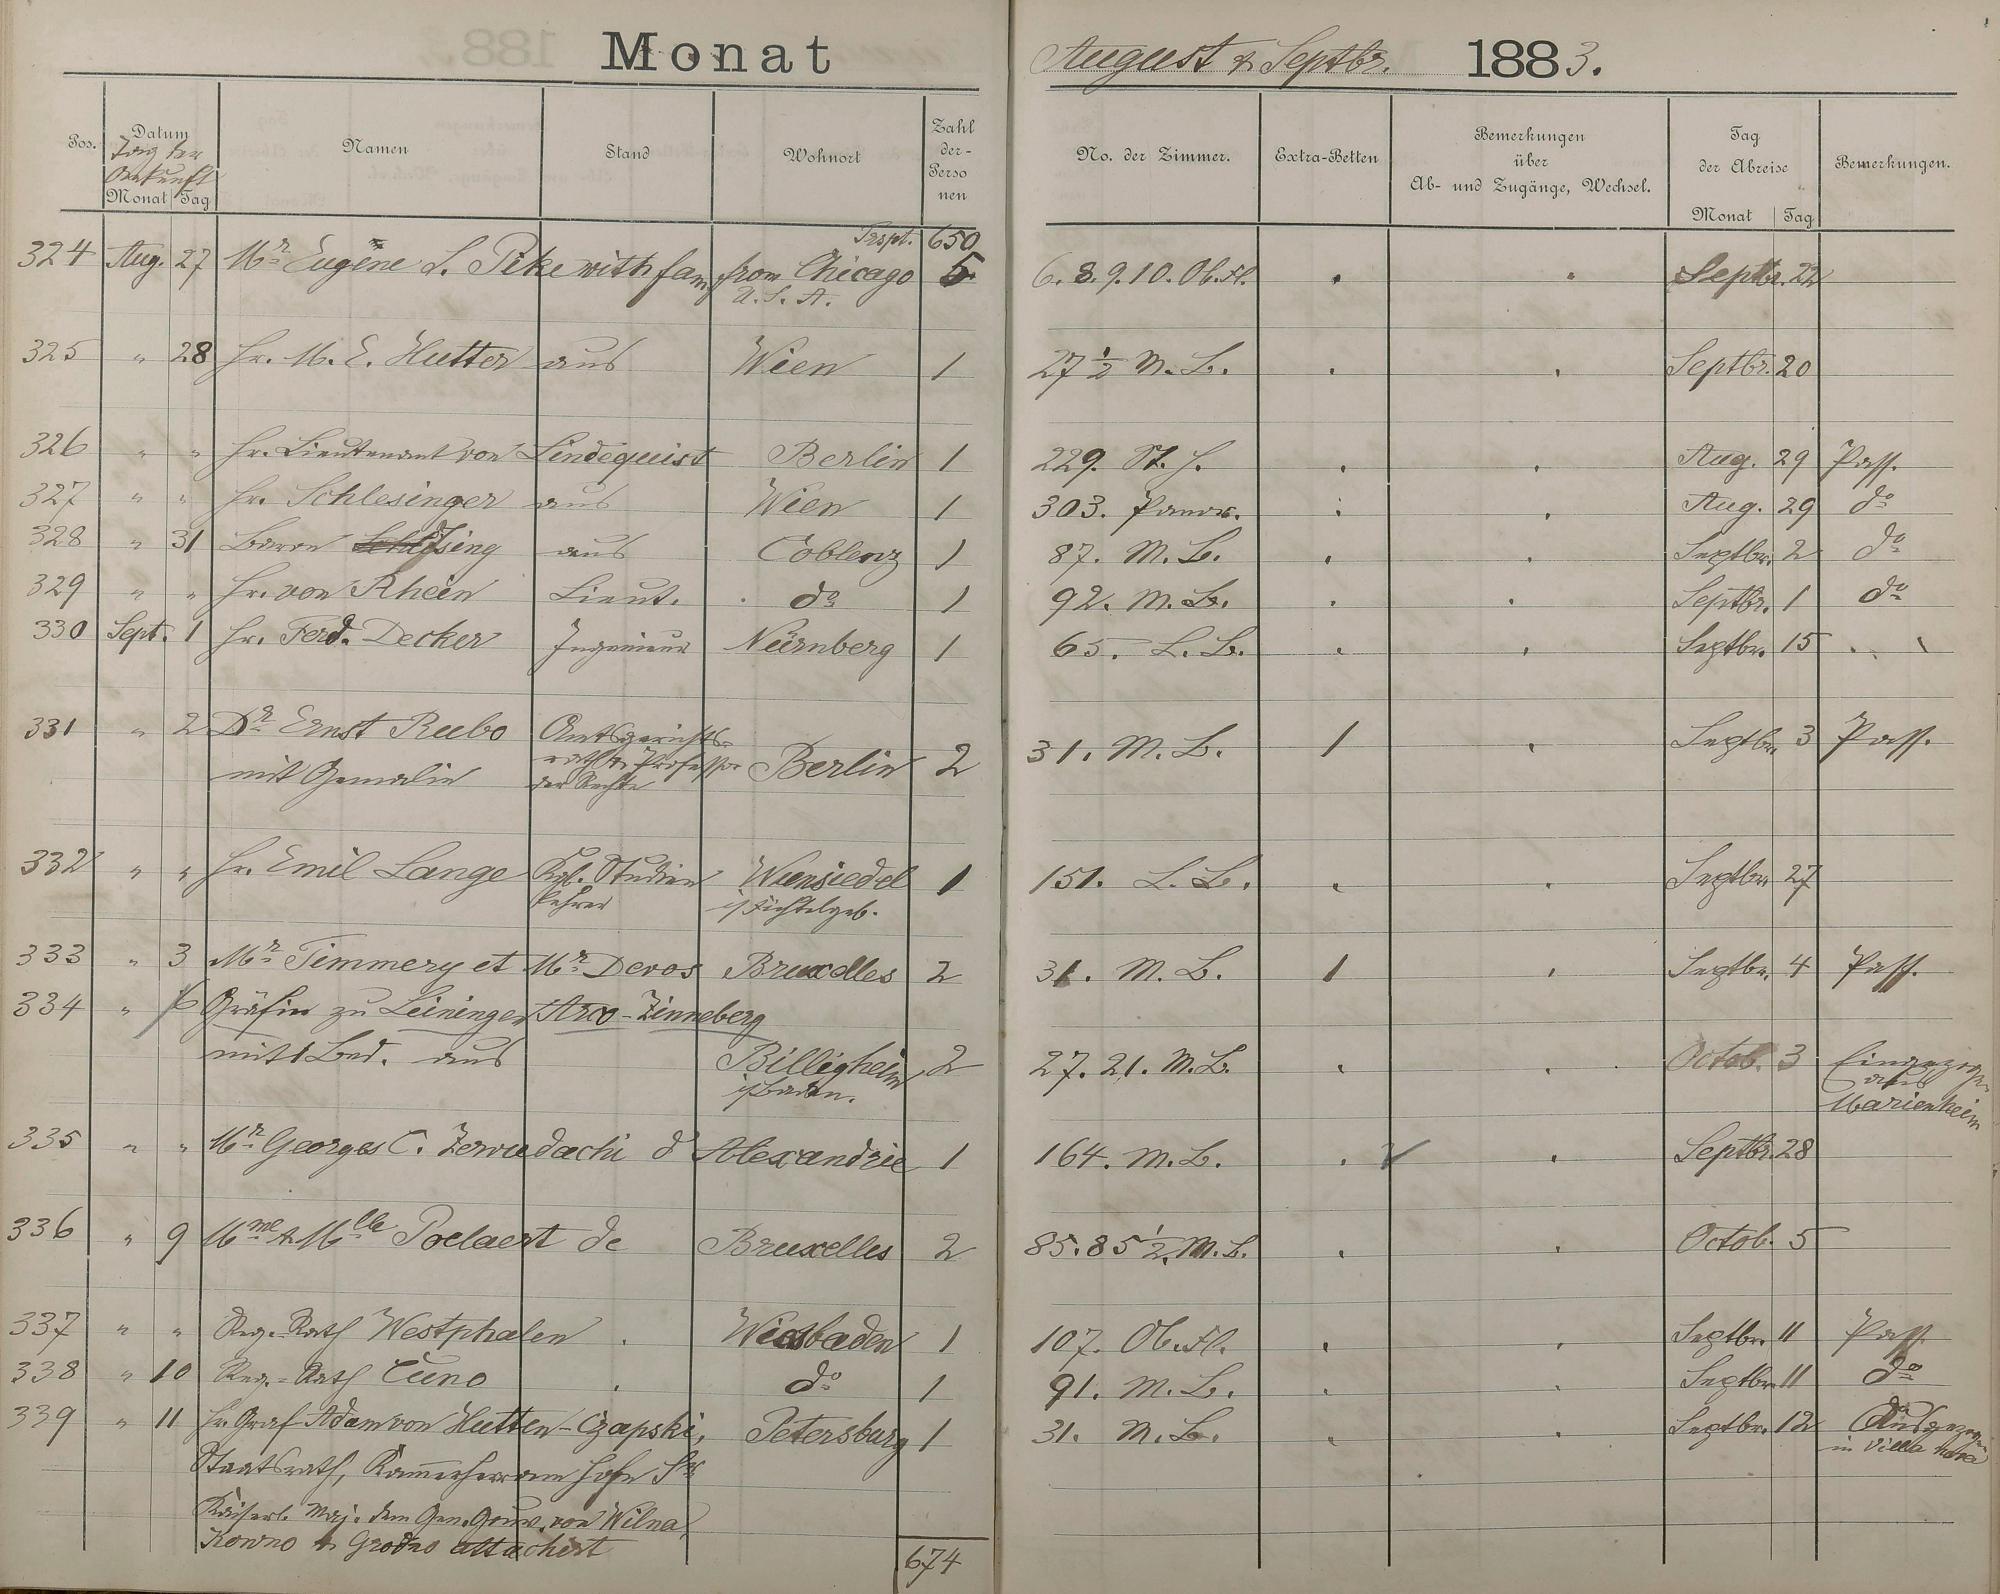 Monat August & Septbr. 1883.
Pos. Datum Namen Stand Wohnort Zahl der Personen No. der Zimmer. Extra-Betten Bemerkungen über Ab- und Zugänge, Wechsel. Tag der Abreise Bemerkungen.
Tag der Ankunft
Monat Tag Monat Tag
Trspt. 650
324 Aug. 27 Mr Eugène S. Pike with fam. from Chicago 5 6. 8. 9. 10. Ob. St. Septbr. 22
U. S. A.
325 " 28 Hr. M. E. Hutter aus Wien 1 27 1/2 M. B. Septbr. 20
326 " " Hr. Lieutenant von Lindequist Berlin 1 229. St. H. Aug. 29 Pass.
327 " " Hr. Schlesinger aus Wien 1 303. Panor. Aug. 29 do
328 " 31 Baron aus Coblenz 1 87. M. B. Septbr. 2 do
329 " " Hr. von Rhein Lieut. do 1 92. M. B. Septbr. 1 do
330 Sept. 1 Hr. Ferd. Decker Ingenieur Nürnberg 1 65. L. B. Septbr. 15
331 " 2 Dr Ernst Rubo Amtsgerichts-
rath u. Professor
der Rechte
mit Gemalin Berlin 2 31. M. B. 1 Septbr. 3 Pass.
332 " " Hr. Emil Lange Kgl. Studien Wunsiedel 1 151. L. B. Septbr. 27
lehrer i/Fichtelgeb.
333 " 3 Mr Timmery et Mr Devos Bruxelles 2 31. M. B. 1 Septbr. 4 Pass.
334 " Gräfin zu Leiningen Arco-Zinneberg
mit 1 Bed. aus Billigheim 2 27. 21. M. B. Octob. 3 Eingezogen
i/Baden. aus
Marienheim
335 " " Mr Georges C. Zervudachi d'Alexandrie 1 164. M. B. Septbr. 28
336 " 9 Mme & Mlle Poelaert de Bruxelles 2 85. 85 1/2. M. B. Octob. 5
337 " " Reg.-Rath Westphalen Wiesbaden 1 107. Ob. St. Septbr. 11 Pass.
338 " 10 Reg.-Rath Cuno do 1 91. M. B. Septbr. 11 do
339 " 11 Hr. Graf Adam von Hutten-Czapski, Petersburg 1 31. M. B. Septbr. 12 Ausgezogen
in Villa
Staatsrath, Kammerherr am Hofe Sr
Kaiserl. Maj. dem Gen. Gouv. von Wilna,
Kowno & Grodno attachirt
674